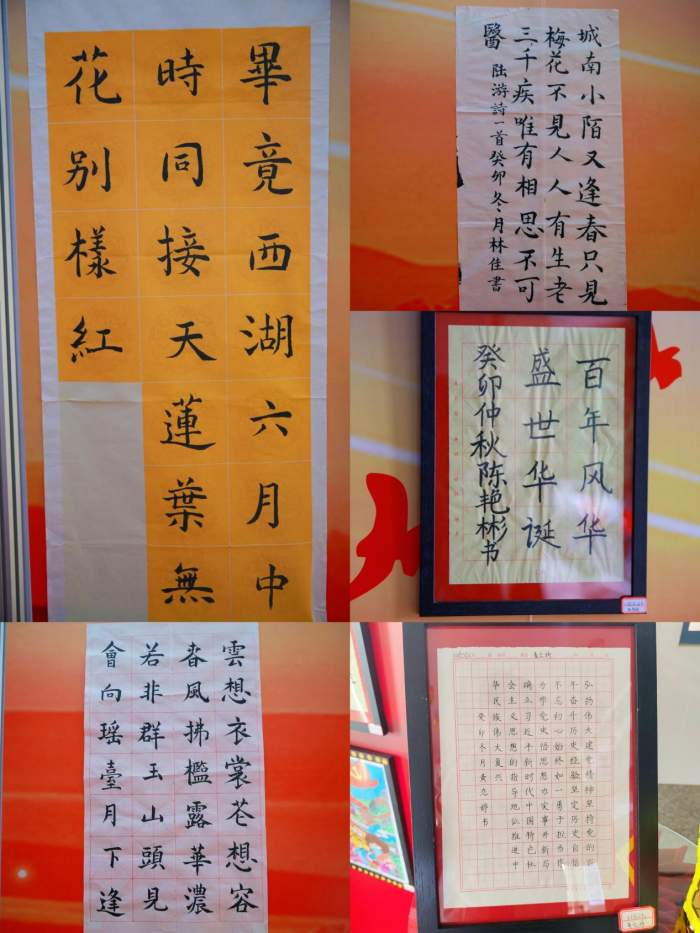 畢竟西湖六月中
時同接天蓮葉無
花别樣紅
城南小陌又逢春只見
梅花不見人人有生老
三千疾唯有相思不可
醫 陆游詩一首癸卯冬月林佳書
百年风华
盛世华诞
癸卯仲秋陈艳彬书
雲想衣裳花想容
春風拂檻露華濃
若非群玉山頭見
會向瑶臺月下逢
弘扬伟大建党精神坚持党的百
年奋斗历史经验坚定历史自信
不忘初心始终如一勇于担当作
为学党史悟思想办实事开新局
确立习近平新时代中国特色社
会主义思想的指导地位推进中
华民族伟大复兴
癸卯冬月黄 婷书